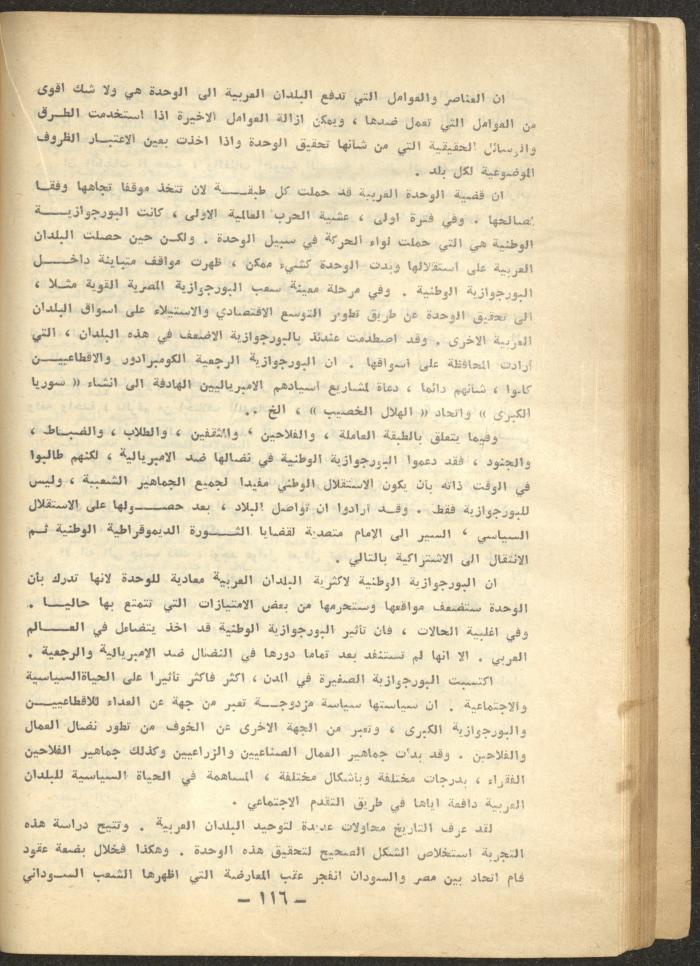 ان العناصر والعوامل التي تدفع البلدان العربية الى الوحدة هي ولا شك اقوى
من العوامل التي تعمل ضدها ، ويمكن ازالة العوامل الاخيرة اذا استخدمت الطرق
والوسائل الحقيقية التي من شانها تحقيق الوحدة واذا اخذت بعين الاعتبار الظروف
الموضوعية لكل بلد .
ان قضية الوحدة العربية قد حملت كل طبقة لان تتخذ موقفا تجاهها وفقا
لمصالحها . وفي فترة اولى ، عشية الحرب العالمية الاولى ، كانت البورجوازية
الوطنية هي التي حملت لواء الحركة في سبيل الوحدة . ولكن حين حصلت البلدان
العربية على استقلالها وبدت الوحدة كشيء ممكن ، ظهرت مواقف متباينة داخل
البورجوازية الوطنية . وفي مرحلة معينة سعت البورجوازية المصرية القوية مثلا ،
الى تحقيق الوحدة عن طريق تطوير التوسع الاقتصادي والاستيلاء على اسواق البلدان
العربية الاخرى . وقد اصطدمت عندئذ بالبورجوازية الاضعف في هذه البلدان ، التي
ارادت المحافظة على اسواقها . ان البورجوازية الرجعية الكومبرادور والاقطاعيين
كانوا ، شانهم دائما ، دعاة لمشاريع اسيادهم الامبرياليين الهادفة الى انشاء « سوريا
الكبرى » واتحاد « الهلال الخصيب » ، الخ ..
وفيما يتعلق بالطبقة العاملة ، والفلاحين ، والمثقفين ، والطلاب ، والضباط ،
والجنود ، فقد دعموا البورجوازية الوطنية في نضالها ضد الامبريالية ، لكنهم طالبوا
في الوقت ذاته بان يكون الاستقلال الوطني مفيدا لجميع الجماهير الشعبية ، وليس
للبورجوازية فقط . وقد ارادوا ان تواصل البلاد ، بعد حصولها على الاستقلال
السياسي ، السير الى الامام متصدية لقضايا الثورة الديموقراطية الوطنية ثم
الانتقال الى الاشتراكية بالتالي .
ان البورجوازية الوطنية لاكثرية البلدان العربية معادية للوحدة لانها تدرك بان
الوحدة ستضعف مواقعها وستحرمها من بعض الامتيازات التي تتمتع بها حاليا .
وفي اغلبية الحالات ، فان تأثير البورجوازية الوطنية قد اخذ يتضاءل في العالم
العربي . الا انها لم تستنفد بعد تماما دورها في النضال ضد الامبريالية والرجعية .
اكتسبت البورجوازية الصغيرة في المدن ، اكثر فاكثر تأثيرا على الحياة السياسية
والاجتماعية . ان سياستها سياسة مزدوجة تعبر من جهة عن العداء للاقطاعيين
والبورجوازية الكبرى ، وتعبر من الجهة الاخرى عن الخوف من تطور نضال العمال
والفلاحين . وقد بدأت جماهير العمال الصناعيين والزراعيين وكذلك جماهير الفلاحين
الفقراء ، بدرجات مختلفة وباشكال مختلفة ، المساهمة في الحياة السياسية للبلدان
العربية دافعة اياها في طريق التقدم الاجتماعي .
لقد عرف التاريخ محاولات عديدة لتوحيد البلدان العربية . وتتيح دراسة هذه
التجربة استخلاص الشكل الصحيح لتحقيق هذه الوحدة . وهكذا فخلال بضعة عقود
قام اتحاد بين مصر والسودان انفجر عقب المعارضة التي اظهرها الشعب السوداني
– ١١٦ –